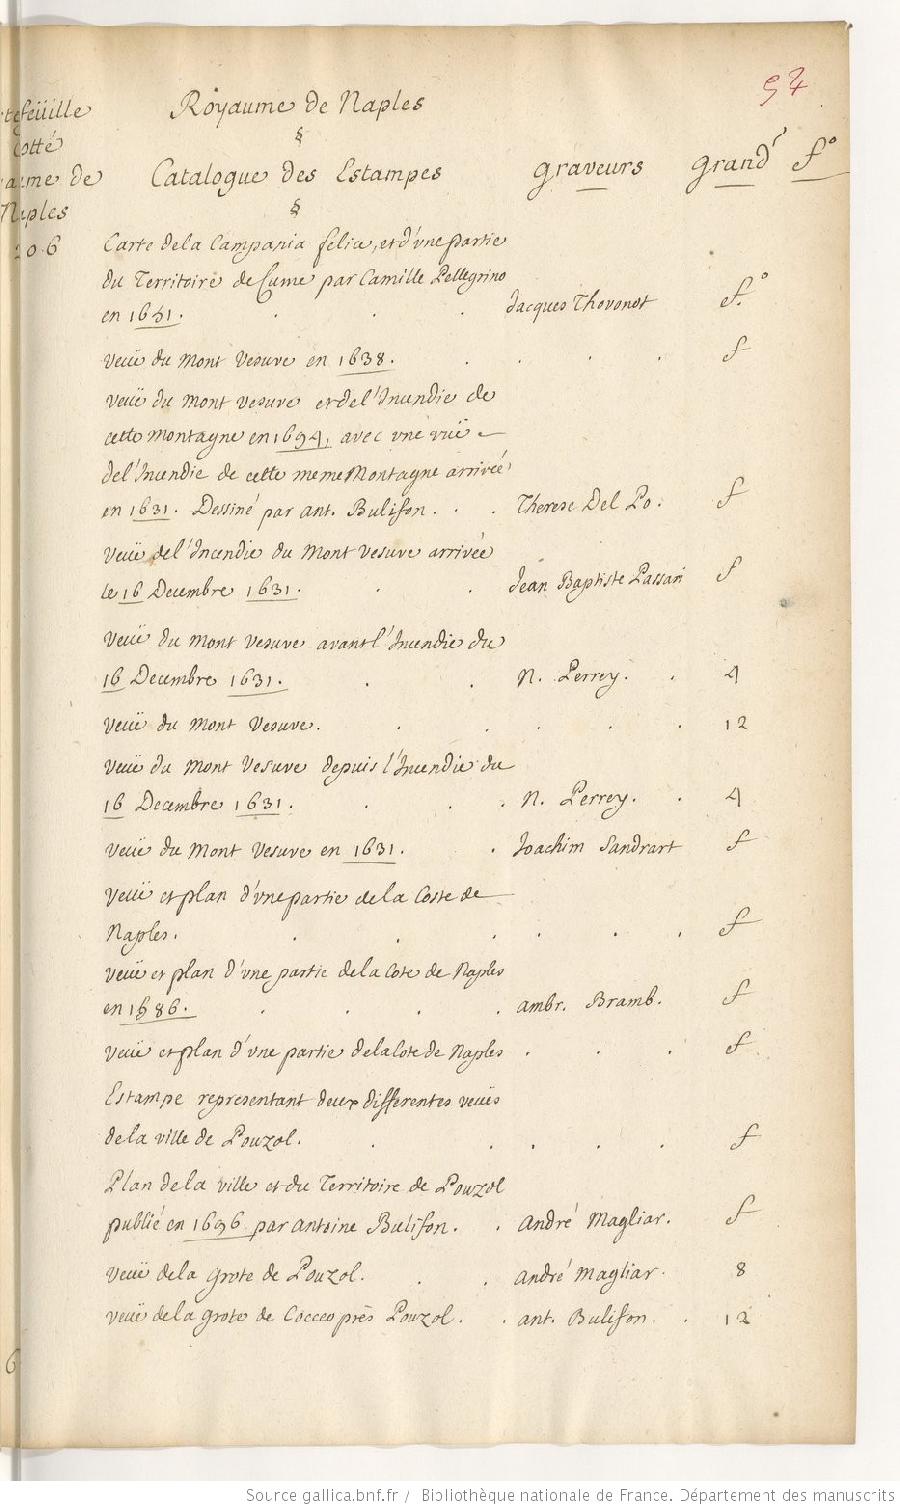 54
Royaume de Naples
§
Catalogue des Estampes graveurs grand.r f.o
§
tefeüille
Cotté
aume de
Naples
206
Carte de la Campania felix, et d'vne partie
du Territoire de Cume par Camille Pellegrino
en 1651. . . Jacques Thevonot f.o
veüe du Mont Vesuve en 1638. . . . . f
veüe du Mont vesuve et de l'Incendie de
cette montagne en 1694. avec vne vuë
de l'Incendie de cette meme Montagne arrivée
en 1631. Dessiné par ant. Bulifon. . . Therese Del Po. f
Veüe de l'Incendie du Mont Vesuve arrivée
le 16 Decembre 1631. . . Jean Baptiste Passari f
Veüe du Mont Vesuve avant l'Incendie du
16 Decembre 1631. . . N. Perrey. . 4
Veüe du Mont Vesuve. . . . . . 12
Veüe du Mont Vesuve depuis l'Incendie du
16 Decembre 1631. . . . N. Perrey. . 4
Veüe du Mont Vesuve en 1631. . Joachim Sandrart f
Veüe et plan d'vne partie de la Coste de
Naples. . . . . . . f
veüe et plan d'vne partie de la Cote de Naples
en 1686. . . . . ambr. Bramb. f
veüe et plan d'vne partie de la Cote de Naples . . . f
Estampe representant deux differentes veües
de la ville de Pouzol. . . . . . f
Plan de la ville et du Territoire de Pouzol
publié en 1696 par Antoine Bulifon. . André Magliar. f
Veüe de la grote de Pouzol. . . André Magliar. 8
veüe de la grote de Cocceo près Pouzol. . ant. Bulifon . 12
6
Source gallica.bnf.fr / Bibliothèque nationale de France. Département des manuscrits